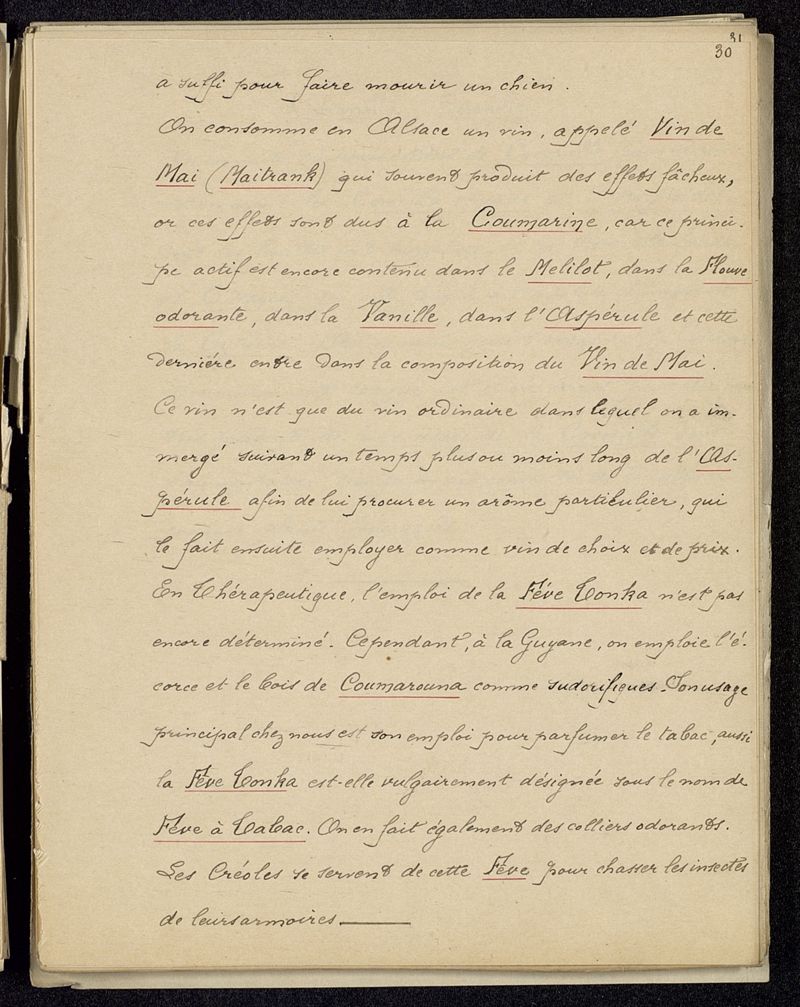 31
30
a suffi pour faire mourir un chien.
On consomme en Alsace un vin, appelé Vin de
Mai (Maitrank) qui souvent produit des effets fâcheux,
or ces effets sont dus à la Coumarine, car ce princi-
pe actif est encore contenu dans le Melilot, dans la Flouve
odorante, dans la Vanille, dans l'Aspérule et cette
dernière entre dans la composition du Vin de Mai.
Ce vin n'est que du vin ordinaire dans lequel on a im-
mergé suivant un temps plus ou moins long de l'As-
pérule afin de lui procurer un arôme particulier, qui
le fait ensuite employer comme vin de choix et de prix.
En Thérapeutique, l'emploi de la Fève Tonka n'est pas
encore déterminé. Cependant, à la Guyane, on emploie l'é-
corce et le bois de Coumarouna comme sudorifiques. Son usage
principal chez nous est son emploi pour parfumer le tabac, aussi
la Fève Tonka est-elle vulgairement désignée sous le nom de
Fève à Tabac. On en fait également des colliers odorants.
Les Créoles se servent de cette Fève pour chasser les insectes
de leurs armoires